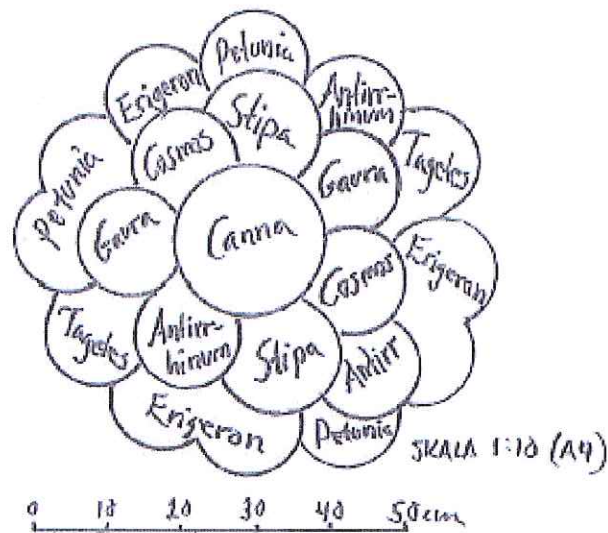 Petunia
Erigeron
Antirr-
hinum
Stipa
Cosmos
Tagetes
Petunia
Gaura
Canna
Gaura
Erigeron
Cosmos
Tagetes
Antirr-
hinum
Stipa
Antirr
Erigeron
Petunia
SKALA 1:10 (A4)
0 10 20 30 40 50cm